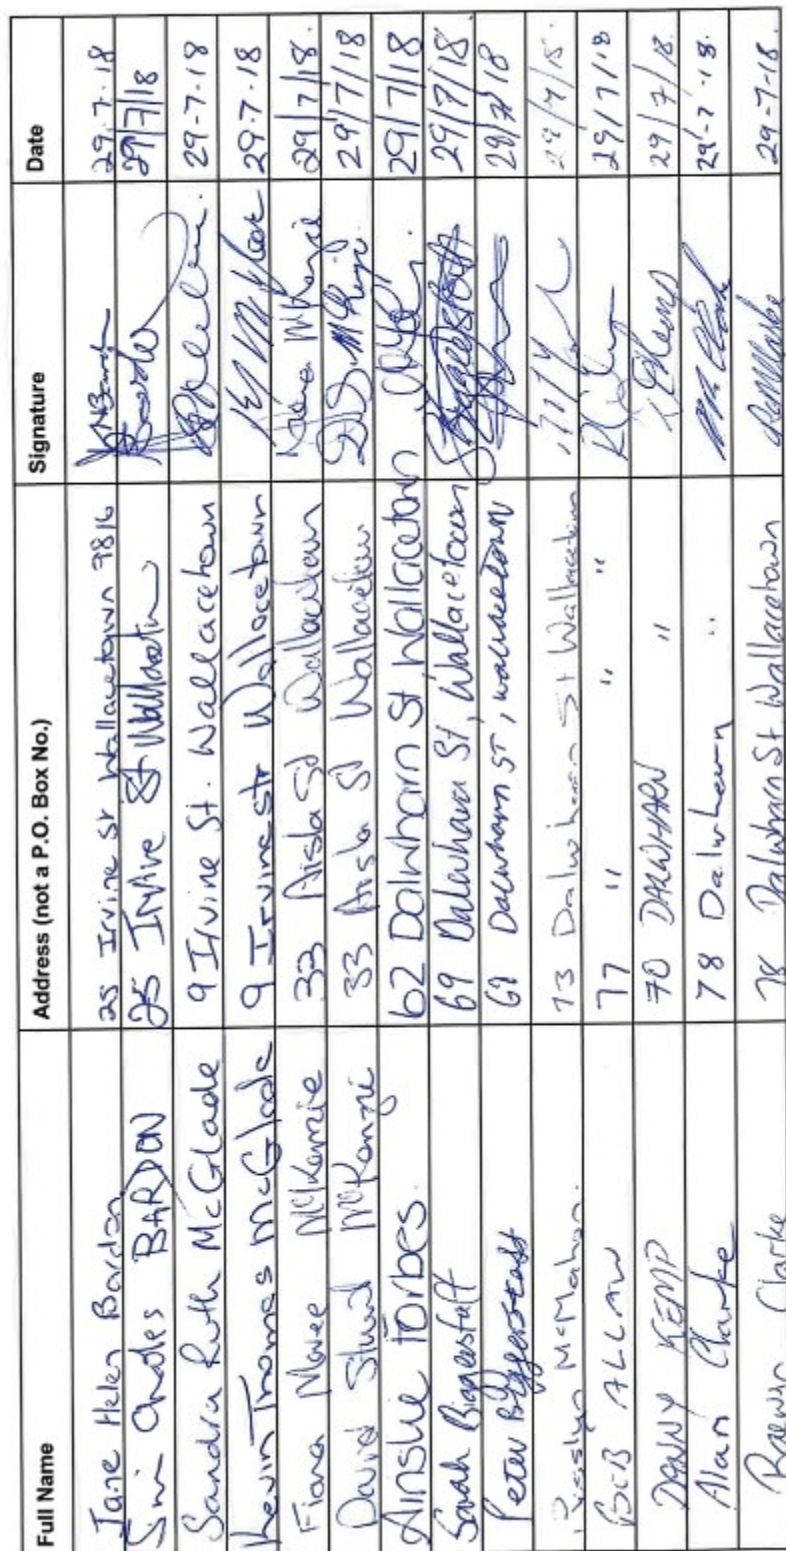 Full Name Address (not a P.O. Box No.) Signature Date
Jane Helen Bardon 25 Irvine St Wallacetown 9816 29.7.18
Charles BARDON 25 Irvine St Wallacetown 29/7/18
Sandra Ruth McGlade 9 Irvine St. Wallacetown 29-7-18
Kevin Thomas McGlade 9 Irvine str Wallacetown 29.7.18
Fiona Maree McKenzie 33 Ailsa St Wallacetown 29/7/18.
David Stuart McKenzie 33 Ailsa St Wallacetown 29/7/18
Ainslie Forbes. 62 Dalwharn St Wallacetown 29/7/18
Sarah Biggerstaff 69 Dalwharn St, Wallacetown 29/7/18.
Peter Biggerstaff 69 Dalwharn ST, Wallacetown 29/7/18
Rosslyn McMahon. 73 Dalwharn St Wallacetown 29/7/18.
BOB ALLAN 77 " " " 29/7/18
DANNY KEMP 70 DALWHARN " 29/7/18.
Alan Clarke 78 Dalwharn " 29-7-18.
Raewyn Clarke 78 Dalwharn St Wallacetown 29-7-18.